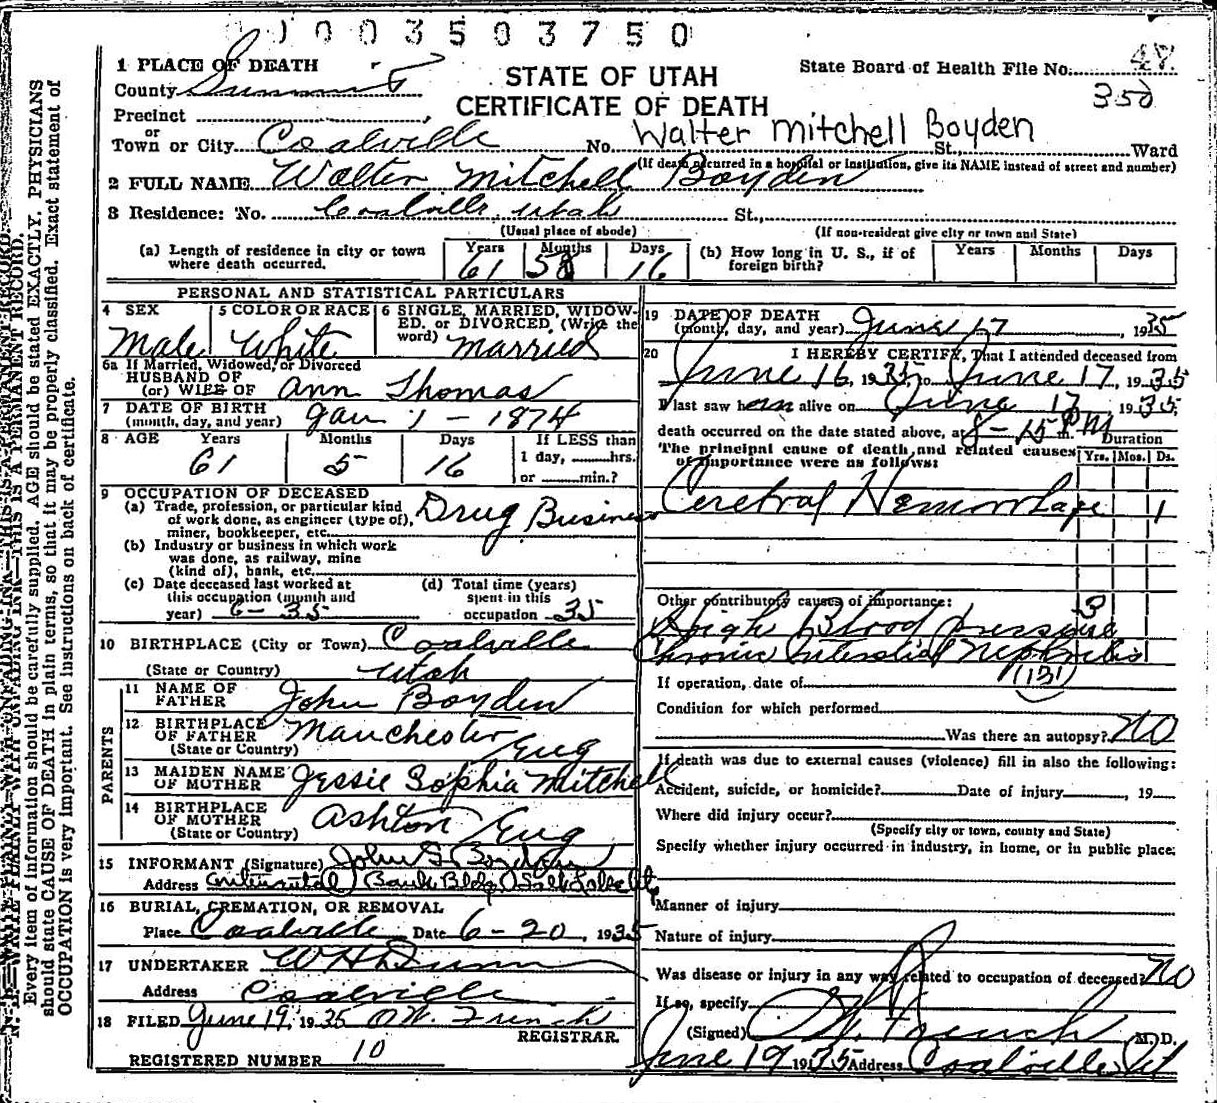 1003503750
1 PLACE OF DEATH
STATE OF UTAH
State Board of Health File No. 48
County Summit
CERTIFICATE OF DEATH
350
Precinct
or
Town or City Coalville No. Walter Mitchell Boyden St., Ward
(If death occurred in a hospital or institution, give its NAME instead of street and number)
2 FULL NAME Walter Mitchell Boyden
3 Residence: No. Coalville, Utah St.,
(Usual place of abode) (If non-resident give city or town and State)
(a) Length of residence in city or town where death occurred. Years 61 Months 5 Days 16
(b) How long in U. S., if of foreign birth? Years Months Days
PERSONAL AND STATISTICAL PARTICULARS
4 SEX Male
5 COLOR OR RACE White
6 SINGLE, MARRIED, WIDOWED, or DIVORCED, (Write the word) Married
6a If Married, Widowed, or Divorced
HUSBAND OF
(or) WIFE OF Ann Thomas
7 DATE OF BIRTH
(month, day, and year) Jan 1 - 1874
8 AGE Years 61 Months 5 Days 16 If LESS than
1 day, hrs.
or min.?
9 OCCUPATION OF DECEASED
(a) Trade, profession, or particular kind
of work done, as engineer (type of),
miner, bookkeeper, etc. Drug Business
(b) Industry or business in which work
was done, as railway, mine
(kind of), bank, etc.
(c) Date deceased last worked at
this occupation (month and
year) 6-35
(d) Total time (years)
spent in this
occupation 35
10 BIRTHPLACE (City or Town) Coalville
(State or Country) Utah
PARENTS
11 NAME OF
FATHER John Boyden
12 BIRTHPLACE
OF FATHER Manchester
(State or Country) Eng
13 MAIDEN NAME
OF MOTHER Jessie Sophia Mitchell
14 BIRTHPLACE
OF MOTHER Ashton
(State or Country) Eng
15 INFORMANT (Signature) John S. Boyden
Address Continental Bank Bldg Salt Lake City
16 BURIAL, CREMATION, OR REMOVAL
Place Coalville Date 6-20, 1935
17 UNDERTAKER W H Dunn
Address Coalville
18 FILED June 19, 1935 O.W. French
REGISTRAR.
REGISTERED NUMBER 10
19 DATE OF DEATH
(month, day, and year) June 17 1935
20 I HEREBY CERTIFY, That I attended deceased from
June 16, 1935, to June 17, 1935
I last saw him alive on June 17 1935;
death occurred on the date stated above, at 8-15 P.M
The principal cause of death and related causes
of importance were as follows:
Duration
Yrs. Mos. Ds.
Cerebral Hemorrhage 1
Other contributory causes of importance:
High Blood Pressure 3
Chronic Interstitial Nephritis
(131)
If operation, date of
Condition for which performed
Was there an autopsy? No
If death was due to external causes (violence) fill in also the following:
Accident, suicide, or homicide? Date of injury , 19
Where did injury occur?
(Specify city or town, county and State)
Specify whether injury occurred in industry, in home, or in public place:
Manner of injury
Nature of injury
Was disease or injury in any way related to occupation of deceased? No
If so, specify
(Signed) French M. D.
June 19 1935 Address Coalville Ut
Every item of information should be carefully supplied. AGE should be stated EXACTLY. PHYSICIANS
should state CAUSE OF DEATH in plain terms, so that it may be properly classified. Exact statement of
OCCUPATION is very important. See instructions on back of certificate.